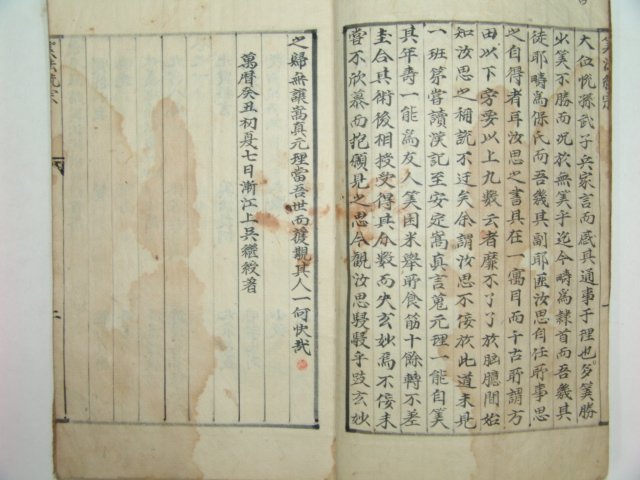 大位恍孫武子兵家言而感其通事于理也多筭勝
少筭不勝而況於無筭乎迄今時爲隸首而吾幾其
徒耶時爲保氏而吾幾其副耶匪汝思自任所事思
之自得者耳汝思之書具在一寓目而千古所謂方
田以下旁要以上九數云者靡不了了於胸臆間始
知汝思之稱説不迂矣余謂汝思不佞於此道未見
一班第嘗讀漢記至安定嵩真言蒐元理一能自筭
其年壽一能爲友人筭囷米舉所食筋十餘轉不差
圭合其術後相授受得其分數而失玄妙焉不佞未
嘗不欣慕而抱願見之思今觀汝思駸駸乎跂玄妙
之歸無讓嵩真元理當吾世而獲觀其人一何快哉
萬曆癸丑初夏七日浙江上吳繼綬著